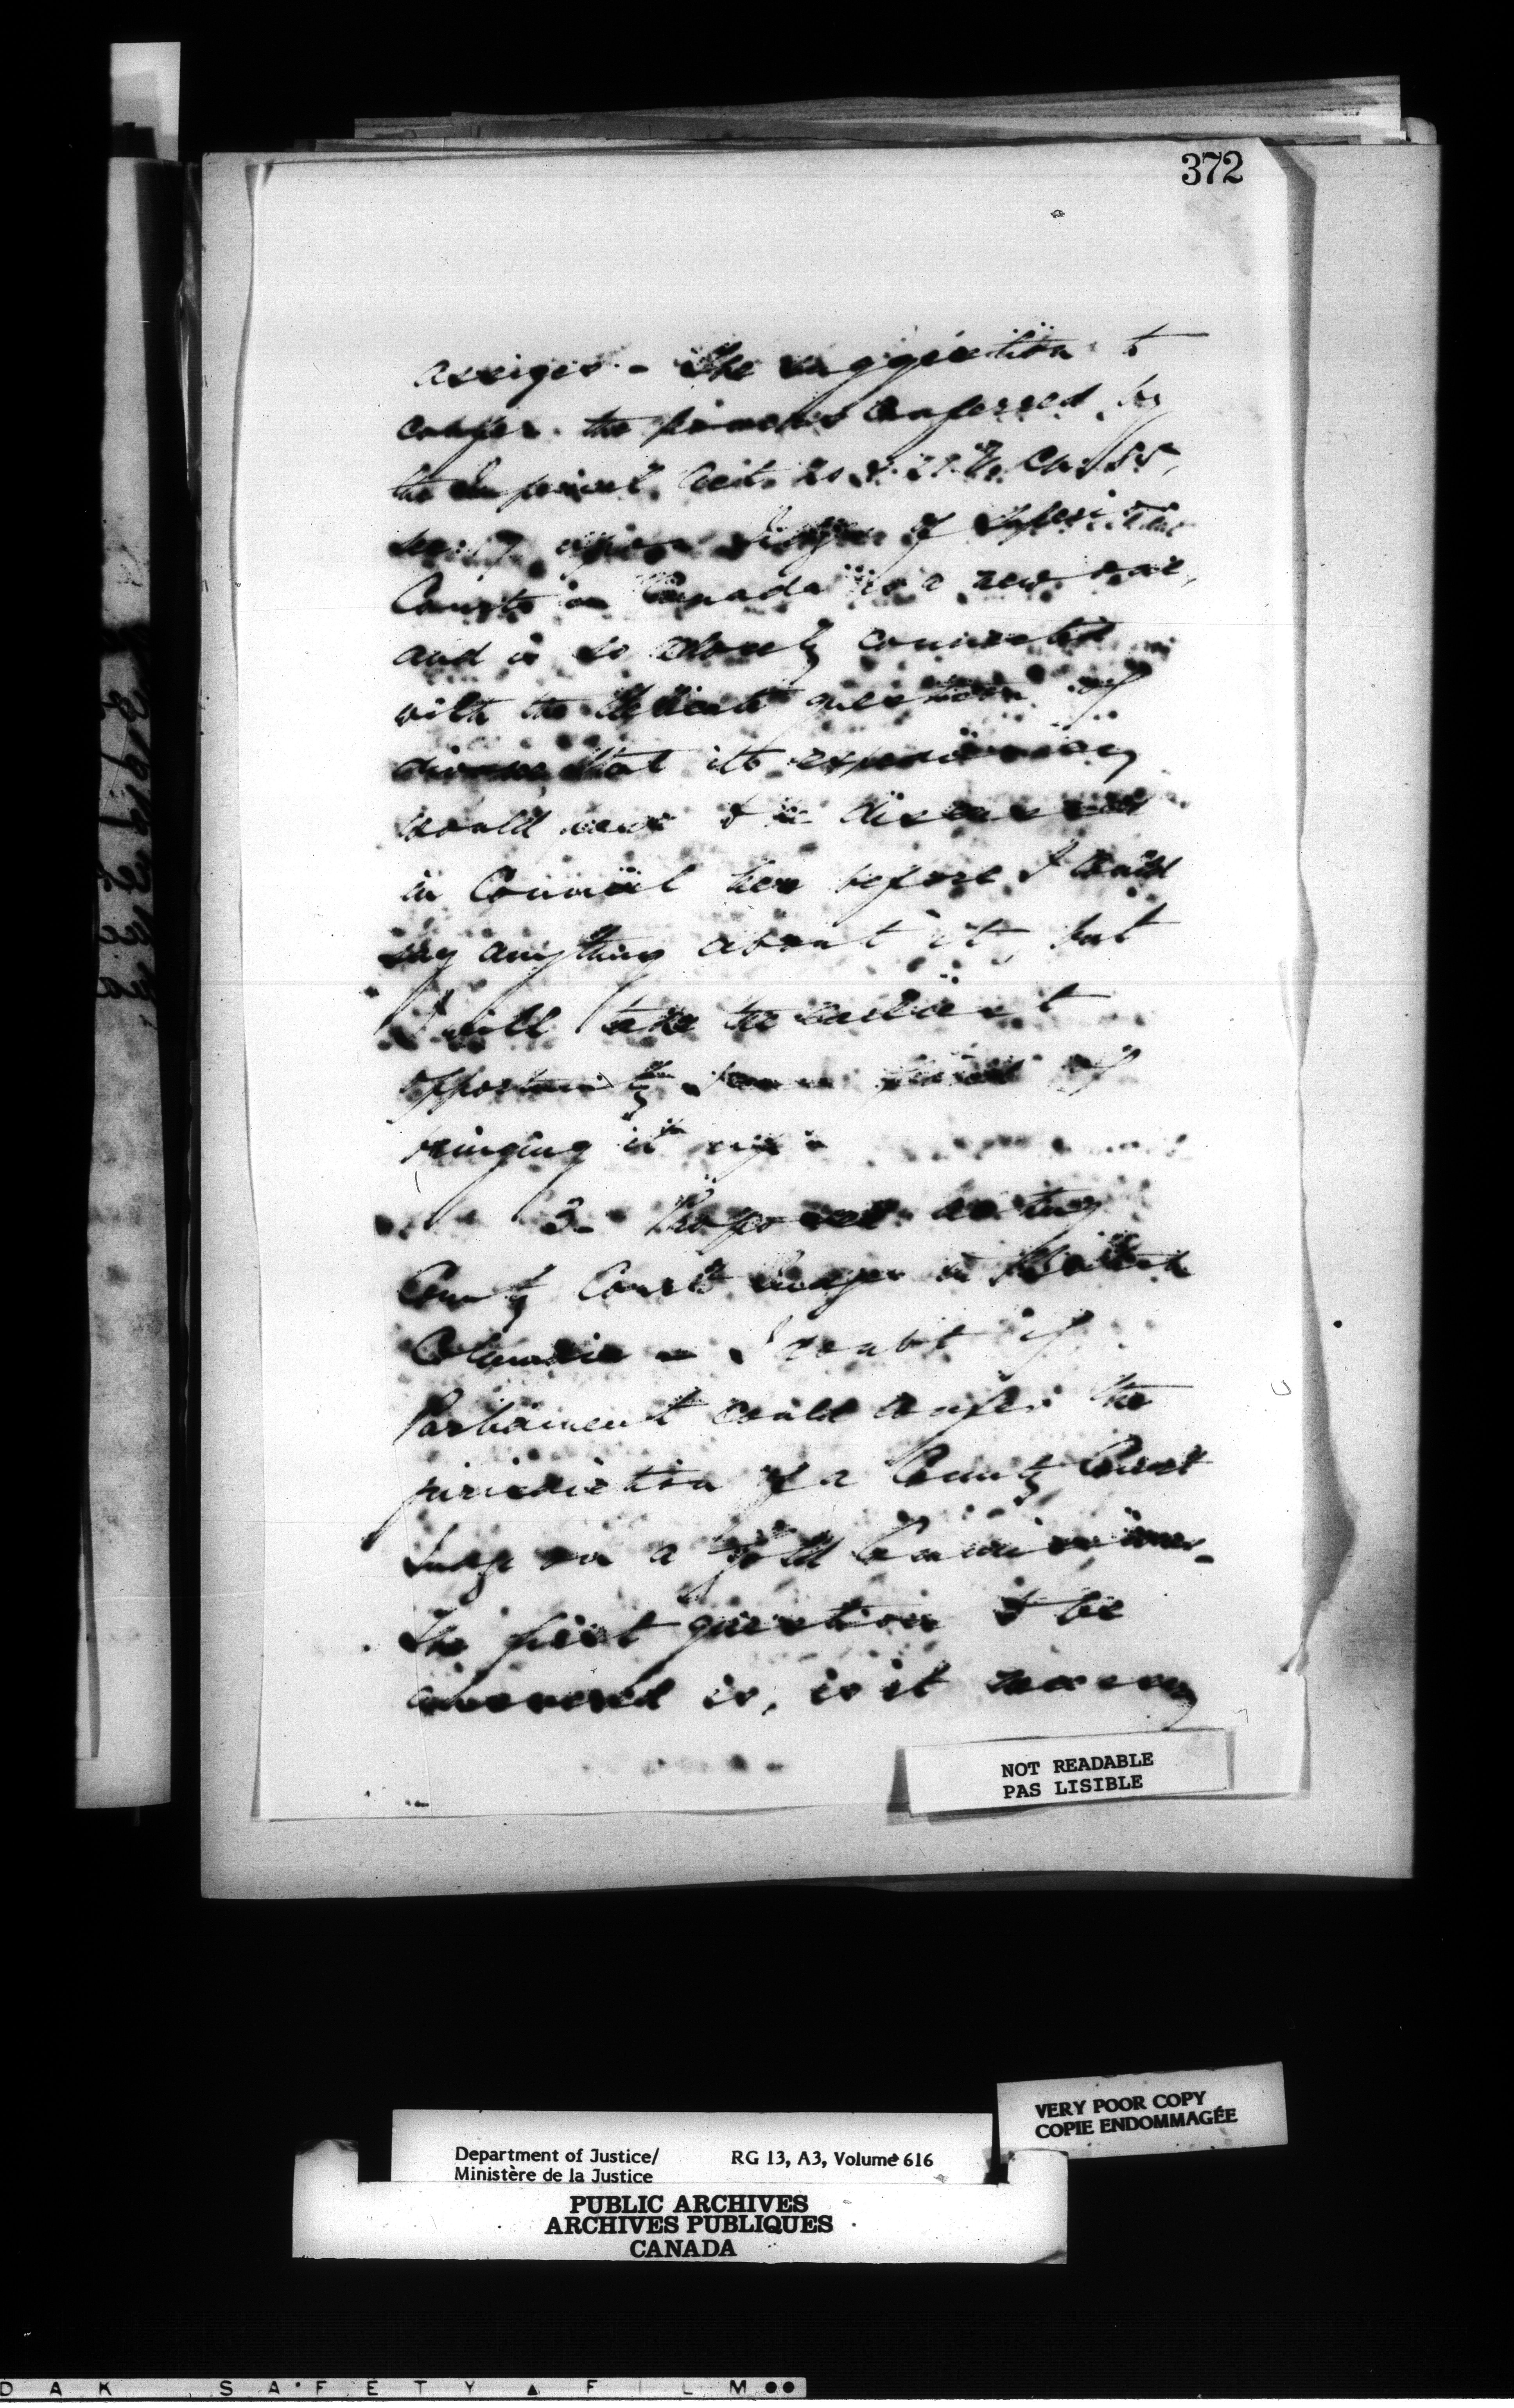 372
assizes - The suggestion to
confer the powers conferred by
the Imperial Act 20 & 21 Vic Cap. 85,
sec. upon Judges of
Courts in Canada is a new one,
and is so closely connected
with the delicate question of
divorce, that its expediency
would need to be discussed
in Council here before I could
say anything about it, but
I will take the earliest
opportunity of
bringing it up -
3 - Proposed acting
County Court Judges in British
Columbia - I doubt if
Parliament could confer the
jurisdiction of a County Court
Judge on a Gold Commissioner -
The first question to be
answered is, is it necessary
NOT READABLE
PAS LISIBLE
VERY POOR COPY
COPIE ENDOMMAGÉE
Department of Justice/ RG 13, A3, Volume 616
Ministère de la Justice
PUBLIC ARCHIVES
ARCHIVES PUBLIQUES
CANADA
DAK SAFETY FILM